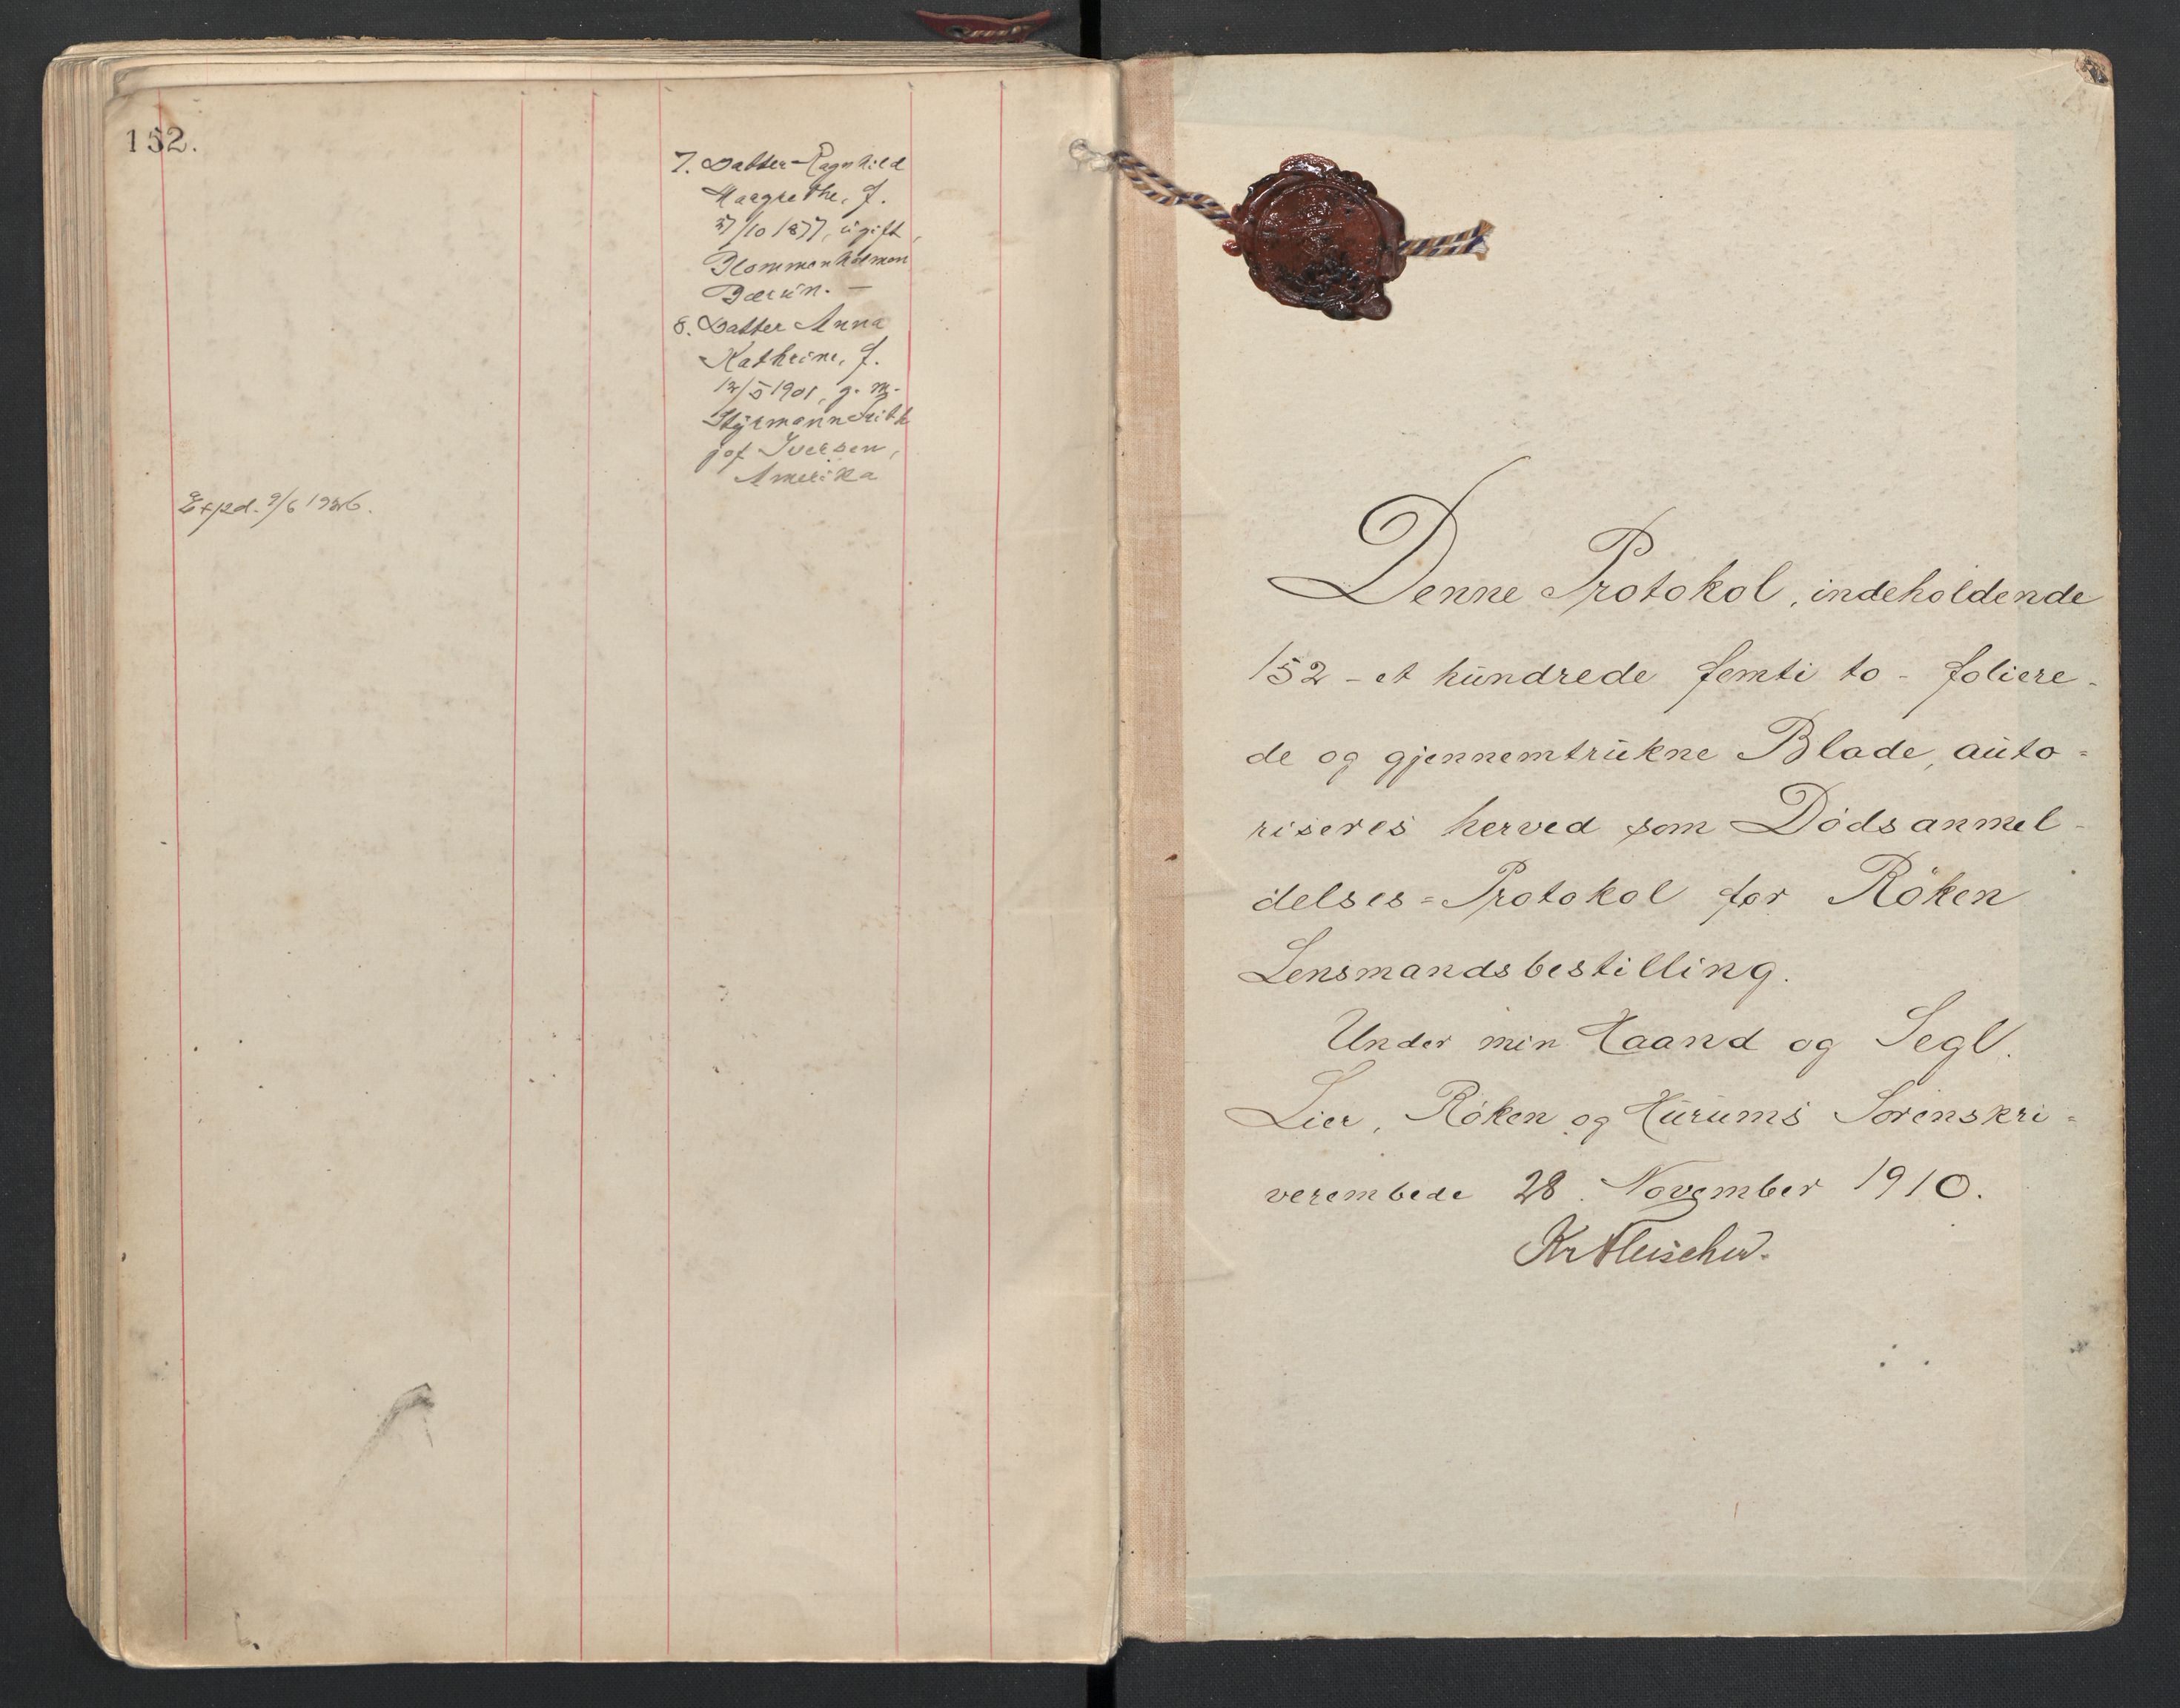 152.
7. Datter Ragnhild
Margrethe, f.
/10 1877, ugift,
Blommenholmen
Bærum. —
8. Datter Anna
Kathrine, f.
12/5 1901, g. m.
Styrmann Frith
jof Iversen,
Amerika
Exped. 9/6 1926.
Denne Protokol, indeholdende
152 - et hundrede femti to - foliere-
de og gjennemtrukne Blade, auto=
riseres herved som Dødsanmel-
delses=Protokol for Röken
Lensmandsbestilling.
Under min Haand og Segl.
Lier, Röken og Hurums Sorenskri=
verembede 28. November 1910.
Kr Fleischer.